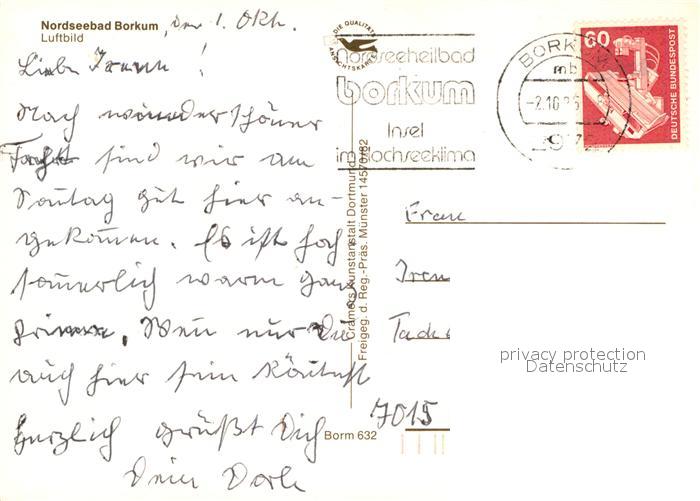 Nordseebad Borkum, den 1. Okt.
Luftbild
DIE QUALITÄTS ANSICHTSKARTE
Liebe Irene!
Nach wunderschöner
Fahrt sind wir am
Sonntag gut hier an-
gekommen. Es ist hoch
sommerlich warm ganz
prima. Wenn nur Du
auch hier sein könntest
Herzlich grüßt Dich
Deine Dorle
Cramers Kunstanstalt Dortmund
Freigeg. d. Reg.-Präs. Münster 14570/82
Borm 632
Nordseeheilbad
borkum
Insel
im Hochseeklima
BORKUM
mb
-2.10.85
60
DEUTSCHE BUNDESPOST
Frau
Iren
7015
privacy protection
Datenschutz